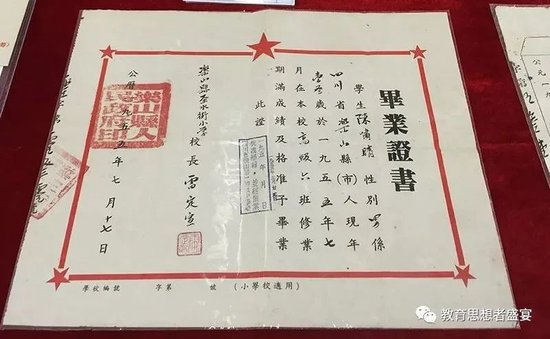 畢業證書
學生陳晴性別係
四川省樂山縣(市)人現年
歲於一九五五年七
月在本校高級六班修業
期滿成績及格准予畢業
此證
樂山縣水街小學校長 雷定宣
公曆一九五五年七月十七日
樂山縣人民政府印
學校編號 字第 號 (小學校適用)
教育思想者盛宴